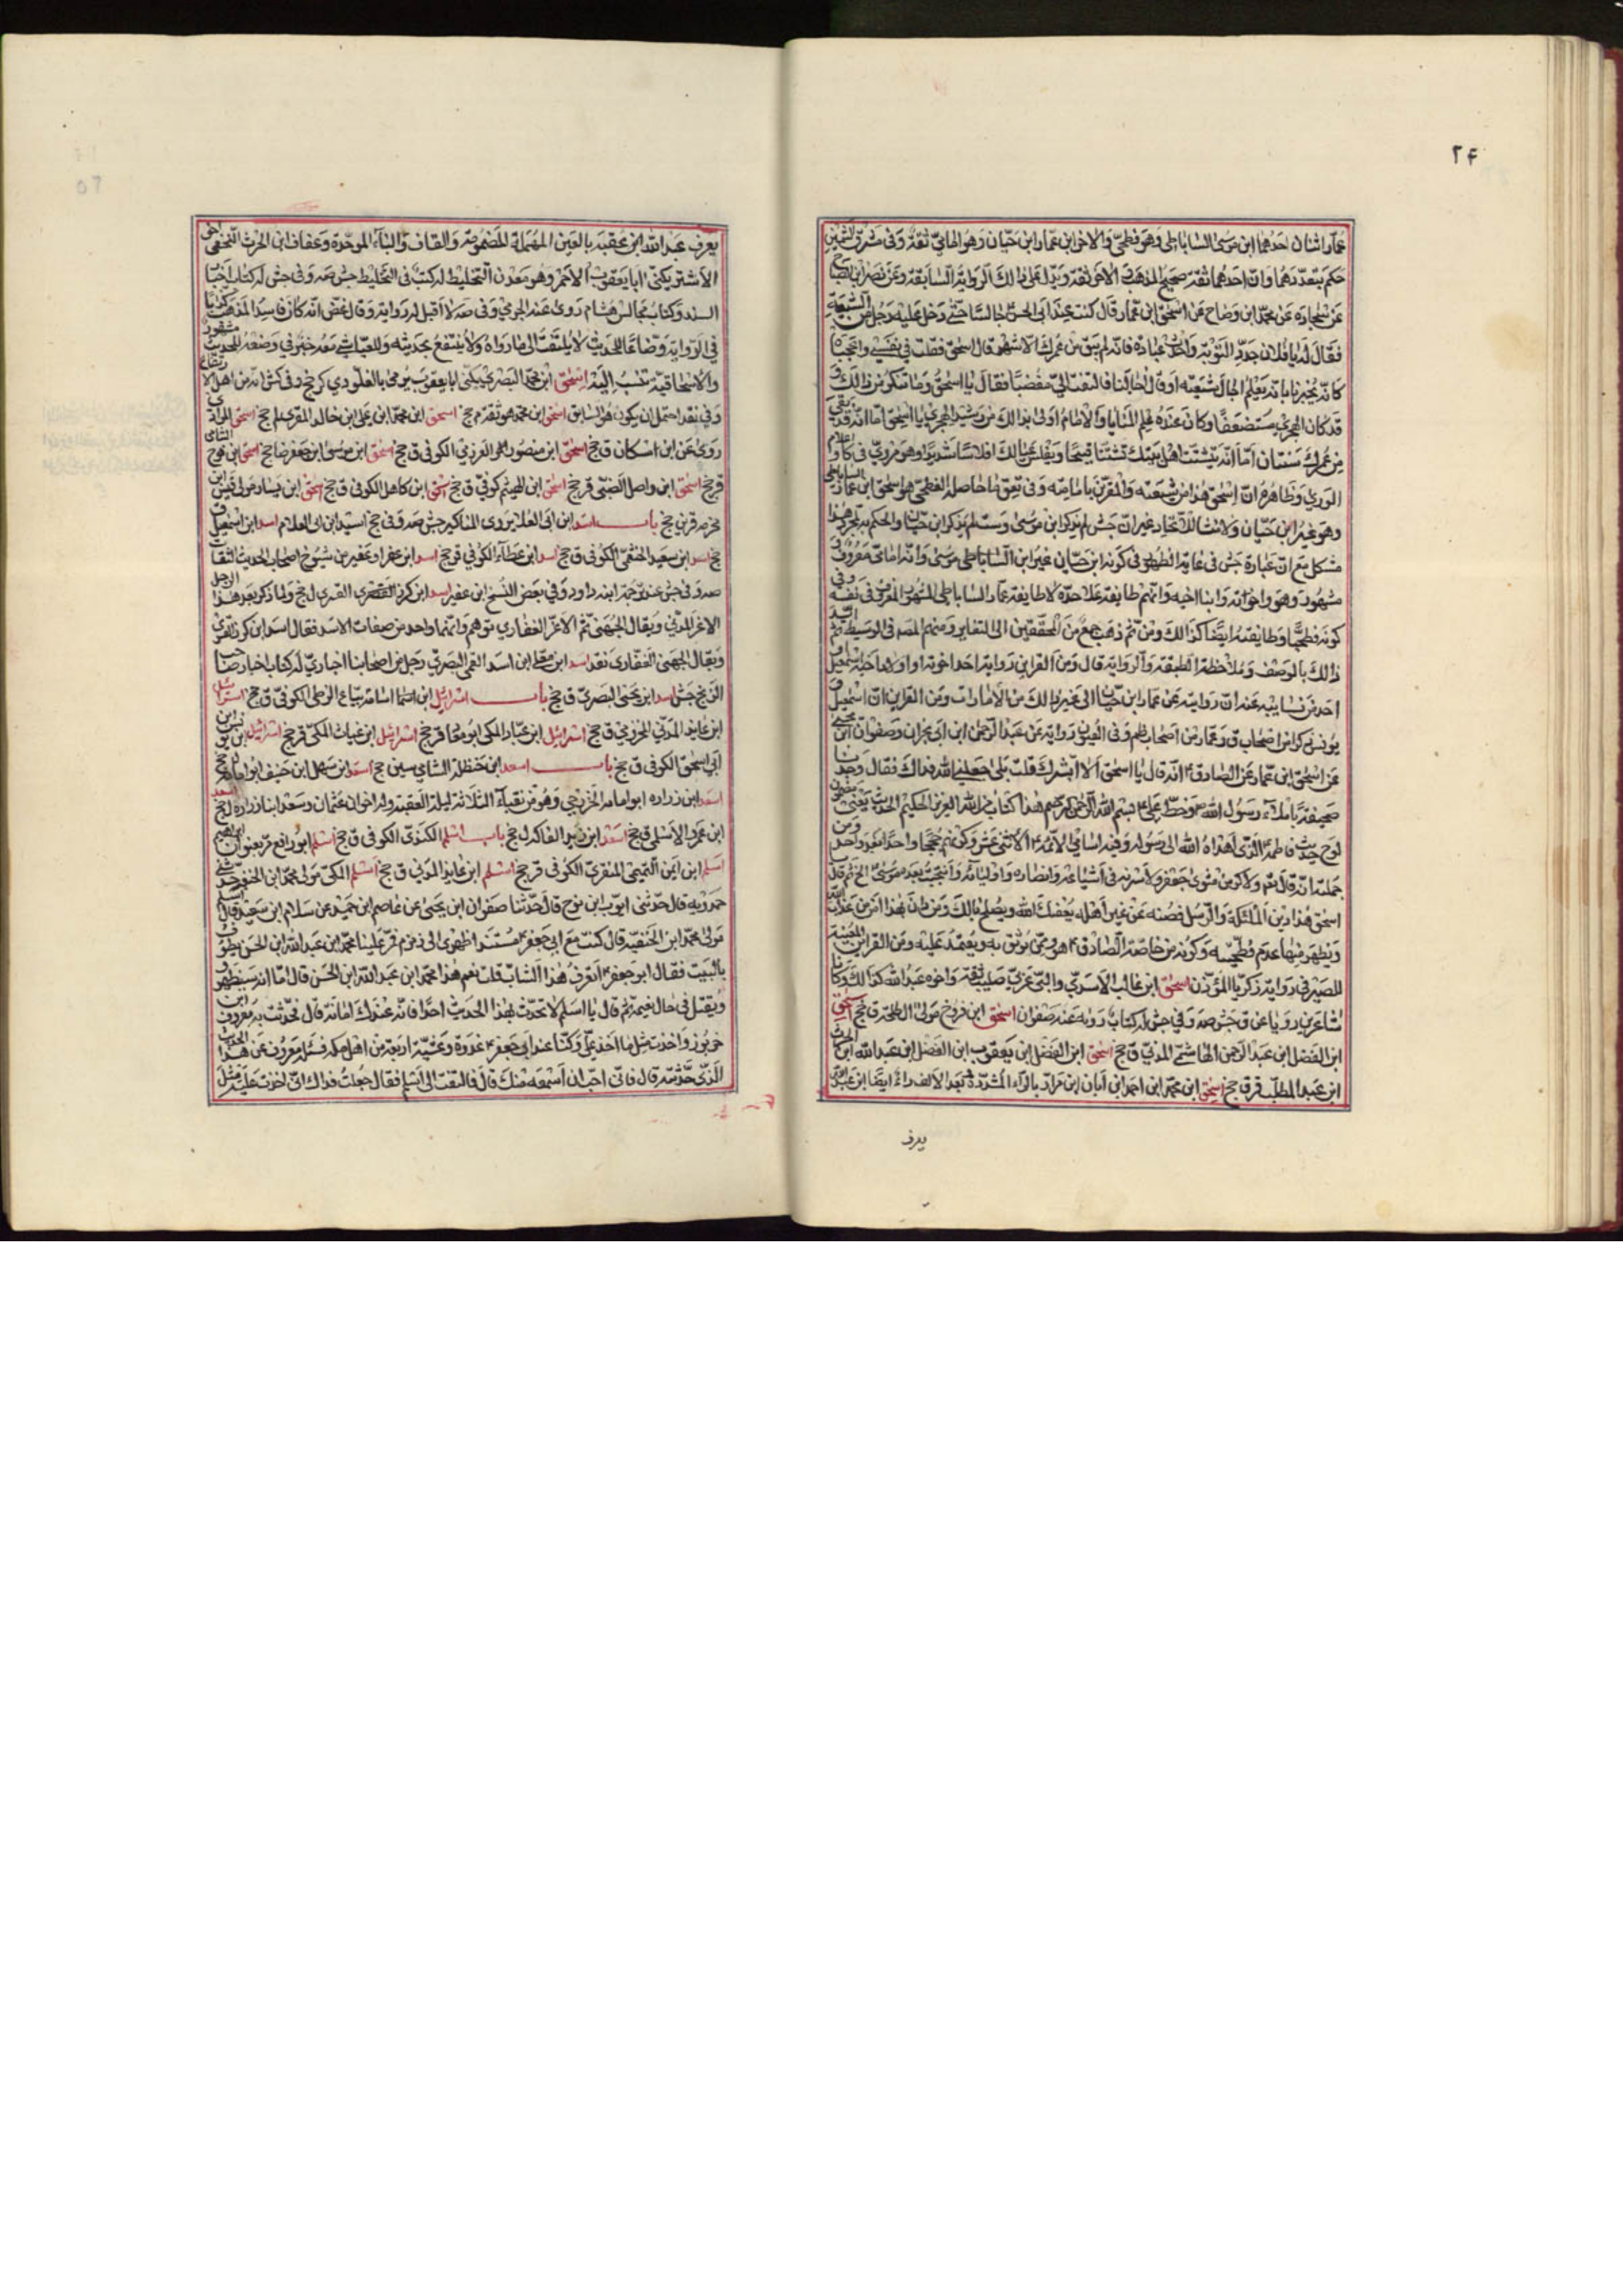 ٢۴
عمار اثنان احدهما ابن موسى الساباطي وهو فطحي والاخر ابن عمار ابن حيان وهو امامي ثقة وفي مشرق الشمسين
حكم بتعددهما وان احدهما ثقة صحيح المذهب والاخر ثقة ويدل على ذالك الرواية السابقة وعن نصر ابن الصباح
عن سجاده عن محمد ابن وضاح عن اسحق ابن عمار قال كنت عند ابى الحسن جالسا حتى دخل عليه رجل من الشيعة
فقال له يا فلان جدد التوبة واحدث عبادة فانه لم يبق من عمرك الا شهر قال اسحق فقلت في نفسي واعجباه
كانه يخبرنا بانه يعلم اجال شيعته او قال اجالنا فالتفت الي مغضبا فقال يا اسحق وما تنكر من ذالك و
قد كان الهجري مستضعفا وكان عنده علم المنايا والامام اولى بذالك من رشيد الهجري يا اسحق اما انه قد بقي
من عمرك سنتان اما انه يتشتت اهل بيتك تشتتا قبيحا ويفلس عيالك افلاسا شديدا وهو مروي في كا واعلام
الورى وظاهره ان اسحق هذا من شيعته والمقرين بامامته وفي تعق ما حاصله الفطحي هو اسحق ابن عمار الساباطي
وهو غير ابن حيان ولا منشا للاتحاد غير ان جش لم يذكر ابن موسى وست لم يذكر ابن حيان والحكم بمجرد هذا
مشكل مع ان عبارة جش في غاية الظهور في كونه ابن حيان غير ابن الساباطي موسى وانه امامي معروف و
مشهور وهو واخوانه وابنا اخيه وانهم طايفة علاحدة لا طايفة عمار الساباطي المشهور المعروف في نفسه وفي
كونه فطحيا وطايفته ايضا كذالك ومن ثم ذهب جمع من المحققين الى التغاير ومنهم المصنف في الوسيط
ذالك بالوصف وملاحظة الطبقة والرواية قال ومن القراين رواية احد اخوته او اولاد اخيه اسمعيل
احد من نسايبه عنه ان روايته عن عمار ابن حيان الى غير ذالك من الامارات ومن القراين ان اسمعيل و
يونس ذكرا من اصحاب ق وعمار من اصحاب ظم وفي العيون رواية عن عبد الرحمن ابن ابى نجران وصفوان ابن يحيى
عن اسحق ابن عمار عن الصادق انه قال يا اسحق الا ابشرك قلت بلى جعلني الله فداك فقال وجدنا
صحيفة باملاء رسول الله وخط علي بسم الله الرحمن الرحيم هذا كتاب من الله العزيز الحكيم الحديث يعني بعين
لوح حديث فاطمة الذي اهداه الله الى رسوله وفيه اسامي الائمة الاثنى عشر وكونهم حججا واحدا بعد واحد ومن
جملته انه قال نعم ولاكرمن مثوى جعفر ولاسرنه في اشياعه وانصاره واوليائه وانتجبت بعده موسى الخ ثم قال
اسحق هذا دين الملئكة والرسل فصنه عن غير اهله يعظك الله ويصلح بالك ومن دان بهذا امن من عذاب الله
ويظهر منها عدم فطحيته وكونه من خاصة الصادق هو وممن يوثق به ويعتمد عليه ومن القراين المعينة
للصيرفي رواية زكريا المؤذن اسحق ابن غالب الاسدي والبي عربي صليب ثقة واخوه عبد الله كذالك وكانا
شاعرين رويا عن ق جش صه وفي جش له كتاب رويه عنه صفوان اسحق ابن فروخ مولى ال طلحة ق جخ اسحق
ابن الفضل ابن عبد الرحمن الهاشمي المدني ق جخ اسحق ابن الفضل ابن يعقوب ابن الفضل ابن عبد الله ابن الحرث
ابن عبد المطلب قرق جخ اسحق ابن محمد ابن احمد ابن ابان ابن مرار بالراء المشددة بعد الالف راء ايضا ابن عبد الله
يعرف
يعرف عبد الله ابن عقبه بالعين المهملة المضمومة والقاف والباء الموحدة وعفاف ابن الحرث النخعي اخى
الاشتر يكنى ابا يعقوب الاحمر وهو معدن التخليط له كتب في التخليط جش صه وفي جش له كتاب اخبار
السيد وكتاب مجالس هشام روى عنه الجرمي وفي صه لا اقبل له رواية وقال غض انه كان فاسد المذهب كذابا
في الرواية وضاعا للحديث لا يلتفت الى ما رواه ولا ينتفع بحديثه وللعياشي معه خبر في وضعه للحديث مشهور
والاسحاقية تنسب اليه اسحق ابن محمد البصري يكنى ابا يعقوب يرمى بالغلو دي كر جخ وفي كش انه من اهل الارتفاع
وفي نقد احتمل ان يكون هو السابق اسحق ابن محمد هو ثقة م جخ اسحق ابن محمد ابن علي ابن خالد المقري لم جخ اسحق المرادى
روى عن ابن مسكان ق جخ اسحق ابن منصور العرزمي الكوفي ق جخ اسحق ابن موسى ابن جعفر ضا جخ اسحق ابن نوح الشامي
قر جخ اسحق ابن واصل الضبي قر جخ اسحق ابن الهيثم كوفي ق جخ اسحق ابن كاهل الكوفي ق جخ اسحق ابن يسار مولى قيس ابن
مخرمه قرين جخ باب اسد ابن ابى العلا يروى المناكير جش صه وفي جخ اسيد ابن ابى العلا م اسد ابن اسمعيل
جخ اسد ابن سعيد الخثعمي الكوفي ق جخ اسد ابن عطاء الكوفي ق جخ اسد ابن عفر او عفير من شيوخ اصحاب الحديث الثقات
صه وفي جش عند ترجمة ابنه داود وفي بعض النسخ ابن عفير اسد ابن كرز القسري القسري ل جخ ولما ذكر بعد هذا الرجل
الاغر المدني ويقال الجهني ثم الاغر الغفاري توهم وانهما واحد من صفات الاسد فقال اسد ابن كرز القسرى
ويقال الجهني الغفاري نقد اسد ابن معلى ابن اسد العمى البصري رجل من اصحابنا اخباري له كتاب اخبار صاحب
الزنج جش اسد ابن يحيى البصري ق جخ باب اسرائيل ابن اسامة بياع الزطى الكوفي ق جخ اسرائيل
ابن عايد المدني المخزومي ق جخ اسرائيل ابن عباد المكي ابو معاذ قر جخ اسرائيل ابن غياث المكي قر جخ اسرائيل ابن يونس ابن
ابي اسحق الكوفي ق جخ باب اسعد ابن حنظلة الشامي سين جخ اسعد ابن سهل ابن حنيف ابو امامه
اسعد ابن زراره ابو امامه الخزرجي وهو من نقباء الثلاثة ليلة العقبة وله اخوان عثمان وسعد ابنا زراره ل جخ اسعد
ابن عمرو الاسلمي ق جخ اسعد ابن يزيد الفاكه ل جخ باب اسلم الكندي الكوفي ق جخ اسلم ابو رافع مر بعنوان ابراهيم
اسلم ابن ايمن التميمي المنقري الكوفي قر جخ اسلم ابن عايد المدني ق جخ اسلم المكي مولى محمد ابن الحنفيه جش
حمدويه قال حدثنى ايوب ابن نوح قال حدثنا صفوان ابن يحيى عن عاصم ابن حميد عن سلام ابن سعيد قال
مولى محمد ابن الحنفيه قال كنت مع ابى جعفر مستندا ظهرى الى زمزم فمر علينا محمد ابن عبد الله ابن الحسن يطوف
بالبيت فقال ابو جعفر اتعرف هذا الشاب قلت نعم هذا محمد ابن عبد الله ابن الحسن قال اما انه سيظهر و
ويقتل في حال بغيه ثم قال يا اسلم لا تحدث بهذا الحديث احدا فانه عندك امانة قال فحدثت به معروف ابن
خربوز واخذت مثل ما اخذ علي وكنا عند ابى جعفر غدوة وعشية اربعة من اهل مكه فسئله معروف عن هذا الحديث
الذي حدثته قال فانى احب ان اسمعه منك قال فالتفت الى اسلم فقال جعلت فداك انى اخذت عليه مثل